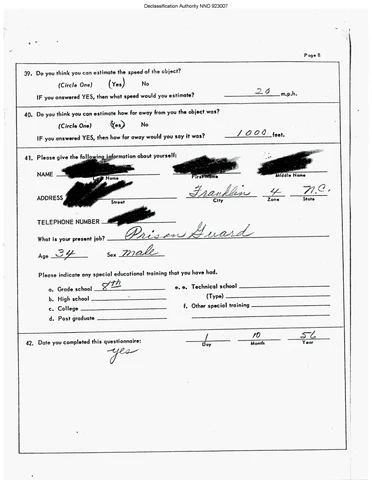 Declassification Authority NND 923007
Page 8
39. Do you think you can estimate the speed of the object?
(Circle One) (Yes) No
IF you answered YES, then what speed would you estimate? 20 m.p.h.
40. Do you think you can estimate how far away from you the object was?
(Circle One) (Yes) No
IF you answered YES, then how far away would you say it was? 1000 feet.
41. Please give the following information about yourself:
NAME
Last Name First Name Middle Name
ADDRESS Franklin 4 N.C.
Street City Zone State
TELEPHONE NUMBER
What is your present job? Prison Guard
Age 34 Sex male
Please indicate any special educational training that you have had.
a. Grade school 8th e. Technical school
b. High school (Type)
c. College f. Other special training
d. Post graduate
42. Date you completed this questionnaire: 1 10 56
Day Month Year
yes